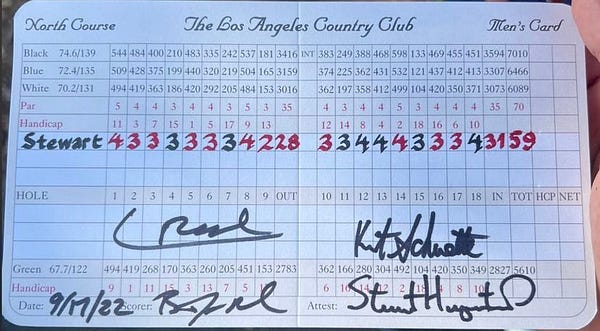 North Course The Los Angeles Country Club Men's Card
Black 74.6/139 544 484 400 210 483 335 242 537 181 3416 INT 383 249 388 468 598 133 469 455 451 3594 7010
Blue 72.4/135 509 428 375 199 440 320 219 504 165 3159 374 225 362 431 532 121 437 412 413 3307 6466
White 70.2/131 494 419 363 186 420 292 205 484 153 3016 362 197 358 412 499 104 420 350 371 3073 6089
Par 5 4 4 3 4 4 3 5 3 35 4 3 4 4 5 3 4 4 4 35 70
Handicap 11 3 7 15 1 5 17 9 13 12 14 8 4 2 18 16 6 10
Stewart 4 3 3 3 3 3 3 4 2 28 3 3 4 4 4 3 3 3 4 31 59
HOLE 1 2 3 4 5 6 7 8 9 OUT 10 11 12 13 14 15 16 17 18 IN TOT HCP NET
Green 67.7/122 494 419 268 170 363 260 205 451 153 2783 362 166 280 304 492 104 420 350 349 2827 5610
Handicap 9 1 11 15 3 13 7 5
Date: 9/17/22 Scorer: Attest: